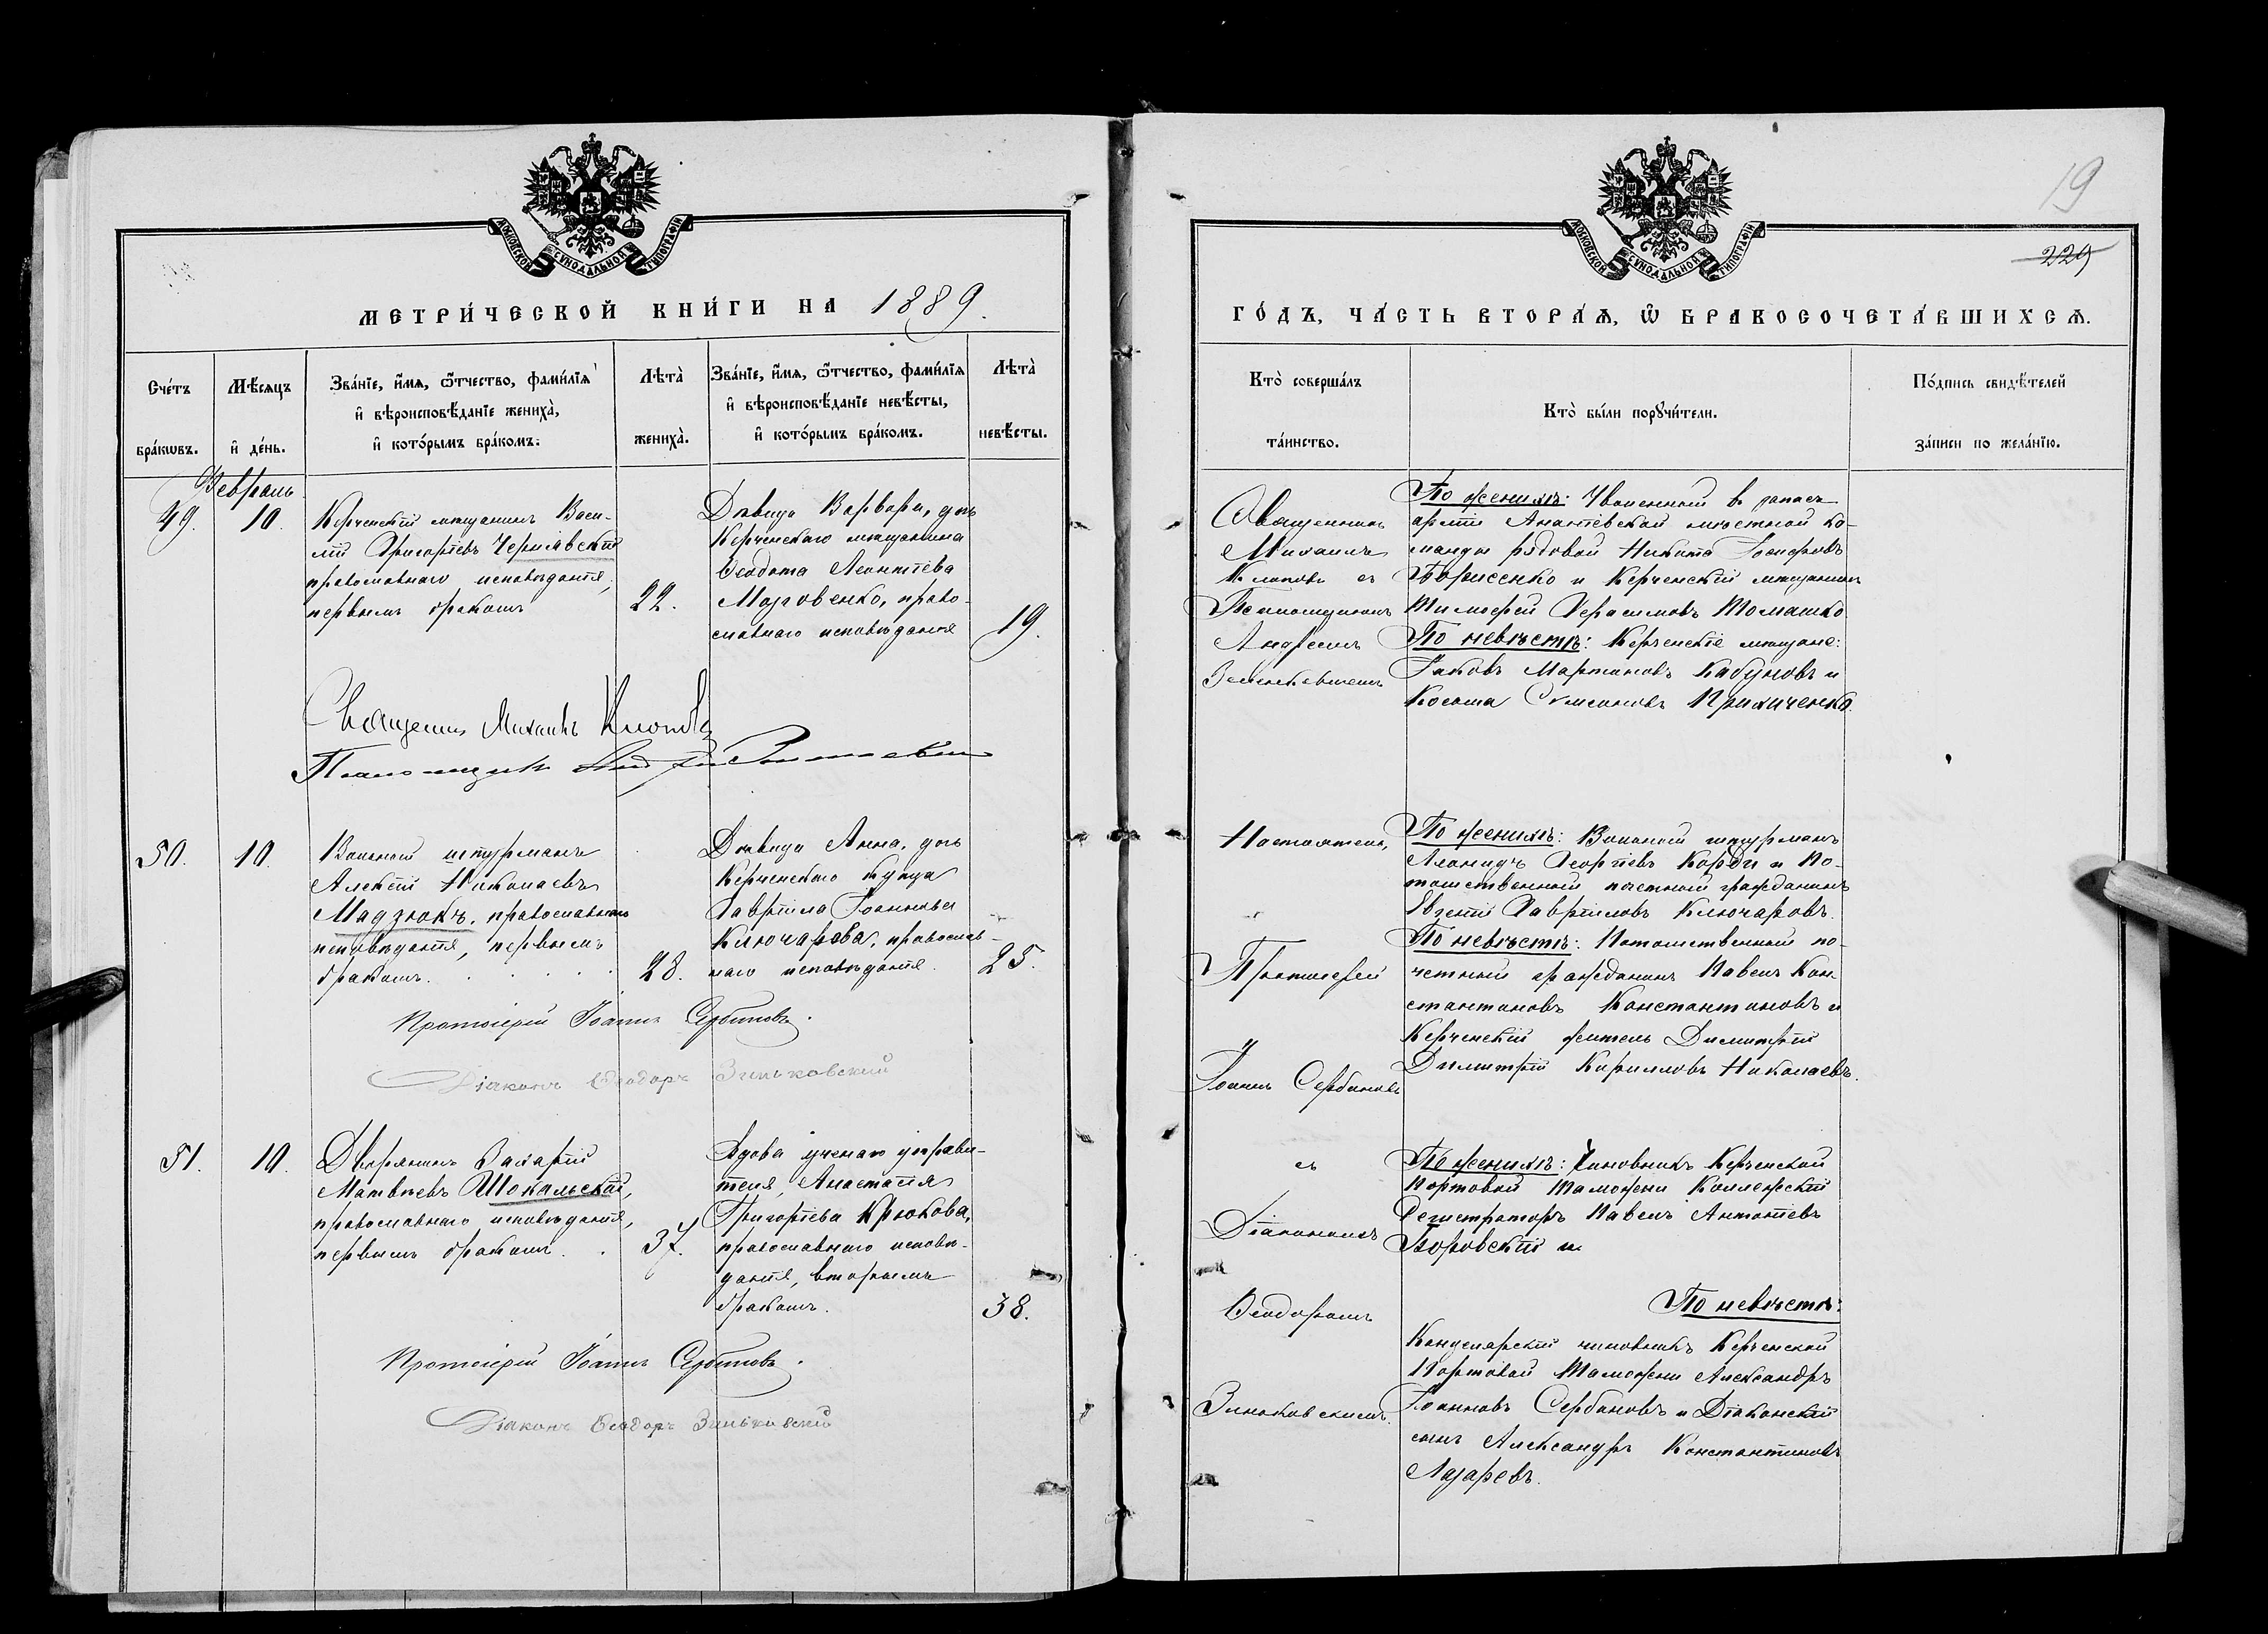 МОСКОВСКОЙ СѴНОДАЛЬНОЙ ТИПОГРАФІИ
МЕТРИ́ЧЕСКОЙ КНИ́ГИ НА 1889.
Сче́тъ бра́кѡвъ.
Мѣ́сяцъ и҆ де́нь.
Зва́нїе, и҆́мѧ, ѻ҆́тчество, фами́лїѧ
и҆ вѣроисповѣ́данїе жениха̀,
и҆ кото́рымъ бра́комъ.
Лѣта̀ жениха̀.
Зва́нїе, и҆́мѧ, ѻ҆́тчество, фами́лїѧ
и҆ вѣроисповѣ́данїе невѣ́сты,
и҆ кото́рымъ бра́комъ.
Лѣта̀ невѣ́сты.
Февраль
49.
10.
Керченскій мѣщанинъ Васи-
лій Григоріевъ Чернявскій
православнаго исповѣданія,
первымъ бракомъ
22.
Дѣвица Варвара, дочь
Керченскаго мѣщанина
Ѳеодота Леонтіева
Марговенко, право-
славнаго исповѣданія
19.
Священникъ Михаилъ Клоповъ
Псаломщикъ Андрей
50.
10.
Вольный штурманъ
Алексій Николаевъ
Мадзюкъ, православнаго
исповѣданія, первымъ
бракомъ.
28.
Дѣвица Анна, дочь
Керченскаго купца
Гавріила Іоаннова
Ключарова, православ-
наго исповѣданія.
25.
Протоіерей Іоаннъ Сербиновъ.
Діаконъ Ѳеодоръ Зиньковскій
51.
10.
Дворянинъ Захарій
Матвѣевъ Шокальскій,
православнаго исповѣданія,
первымъ бракомъ.
37.
Вдова ученаго управи-
теля, Анастасія
Григоріева Крюкова,
православнаго исповѣ-
данія, вторымъ
бракомъ.
38.
Протоіерей Іоаннъ Сербиновъ.
Діаконъ Ѳеодоръ Зиньковскій
19
229
МОСКОВСКОЙ СѴНОДАЛЬНОЙ ТИПОГРАФІИ
ГО́ДЪ, ЧА́СТЬ ВТОРА́Ѧ, Ѽ БРАКОСОЧЕТА́ВШИХСѦ.
Кто̀ соверша́лъ та́инство.
Кто̀ бы́ли порꙋчи́тели.
По́дпись свидѣ́телей за́писи по жела́нїю.
Священникъ
Михаилъ
Клоповъ съ
Псаломщикомъ
Андреемъ
По женихѣ: Уволенный въ запасъ
арміи Ананіевской мѣстной ко-
манды рядовой Никита Іосифовъ
Борисенко и Керченскій мѣщанинъ
Тимофей Герасимовъ Томашко
По невѣстѣ: Керченскіе мѣщане:
Іаковъ Мартиновъ Кабуновъ и
Косьма Симеоновъ Прихиченко.
Настоятель,
Протоіерей
Іоаннъ Сербиновъ
По женихѣ: Вольный штурманъ
Леонидъ Георгіевъ Корди и По-
томственный почетный гражданинъ
Евгеній Гавріиловъ Ключаровъ.
По невѣстѣ: Потомственный по-
четный гражданинъ Павелъ Кон-
стантиновъ Константиновъ и
Керченскій житель Димитрій
Димитрій Кирилловъ Николаевъ.
съ
Діакономъ
Ѳеодоромъ
Зиньковскимъ.
По женихѣ: Чиновникъ Керченской
Портовой Таможни Коллежскій
Регистраторъ Павелъ Антоніевъ
Боровскій и
По невѣстѣ:
Канцелярскій чиновникъ Керченской
Портовой Таможни Александръ
Іоанновъ Сербиновъ и Діаконскій
сынъ Александръ Константиновъ
Лазаревъ.